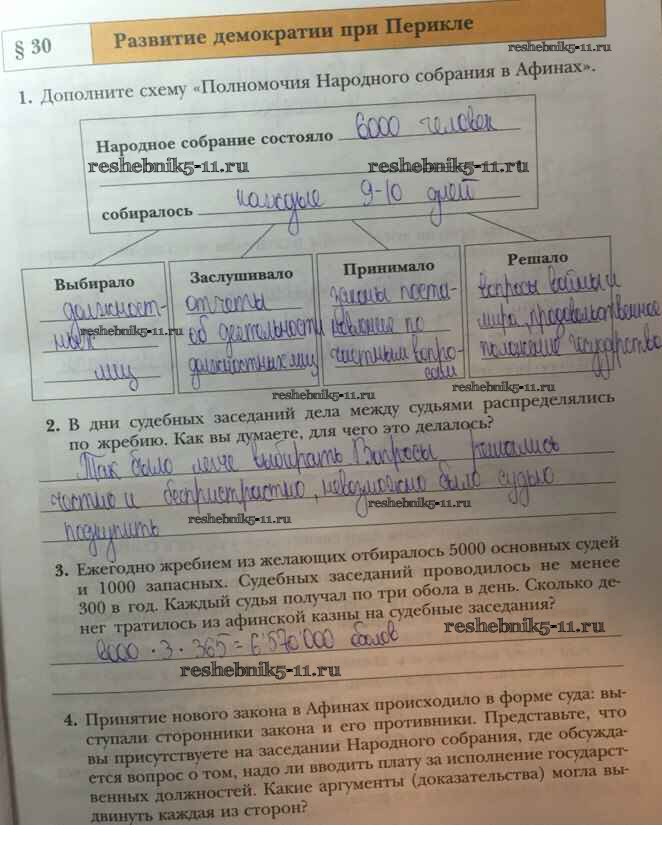 § 30
Развитие демократии при Перикле
reshebnik5-11.ru
1. Дополните схему «Полномочия Народного собрания в Афинах».
Народное собрание состояло 6000 человек
reshebnik5-11.ru reshebnik5-11.ru
собиралось каждые 9-10 дней
Выбирало
должност-
reshebnik5-11.ru
ных
лиц
Заслушивало
отчеты
об деятельности
должностных лиц
Принимало
законы поста-
новление по
частным вопро-
сам
reshebnik5-11.ru
Решало
вопросы войны и
мира, продовольственное
положение государства
reshebnik5-11.ru
2. В дни судебных заседаний дела между судьями распределялись
по жребию. Как вы думаете, для чего это делалось?
Так было легче выбирать Вопросы решались
честно и беспристрастно, невозможно было судью
reshebnik5-11.ru
подкупить
reshebnik5-11.ru
3. Ежегодно жребием из желающих отбиралось 5000 основных судей
и 1000 запасных. Судебных заседаний проводилось не менее
300 в год. Каждый судья получал по три обола в день. Сколько де-
нег тратилось из афинской казны на судебные заседания?
6000 · 3 · 365 = 6'570'000 оболов
reshebnik5-11.ru
reshebnik5-11.ru
4. Принятие нового закона в Афинах происходило в форме суда: вы-
ступали сторонники закона и его противники. Представьте, что
вы присутствуете на заседании Народного собрания, где обсужда-
ется вопрос о том, надо ли вводить плату за исполнение государст-
венных должностей. Какие аргументы (доказательства) могла вы-
двинуть каждая из сторон?